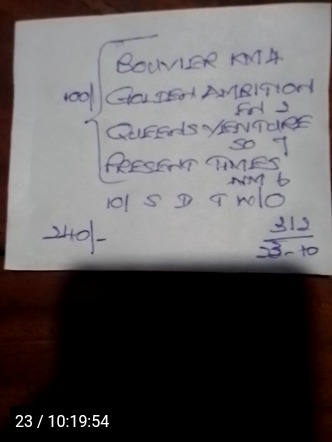 BOUVIER KM 4
100/ GOLDEN AMBITION
EN 2
QUEENS VENTURE
SO 7
PRESENT TIMES
NM 6
10/ S D T W/O
240/-
312
23-10
23 / 10:19:54